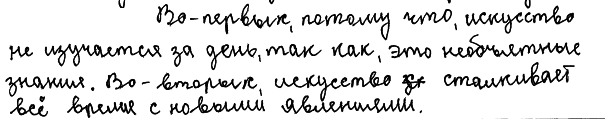 Во-первых, потому что, искусство
не изучается за день, так как, это необъятные
знания. Во-вторых, искусство сталкивает
всё время с новыми явлениями.